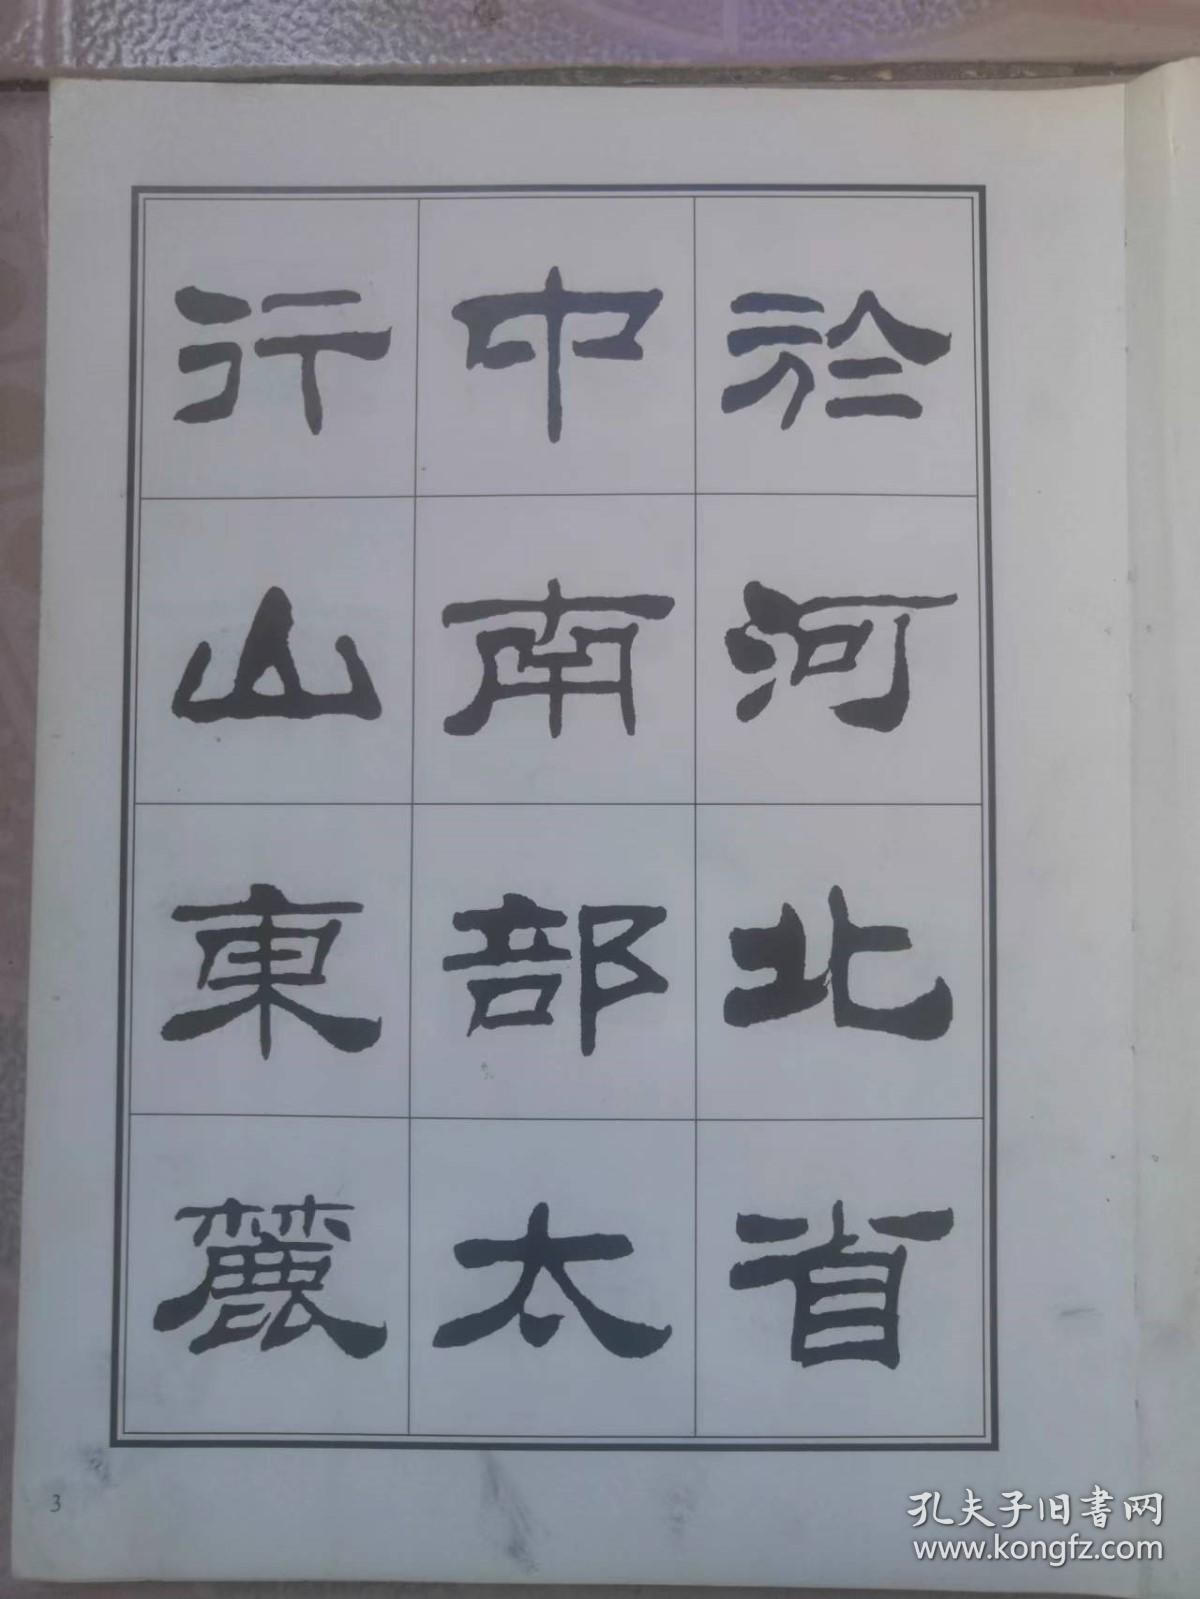 於河北省
中南部太
行山東麓
3
孔夫子旧书网
www.kongfz.com